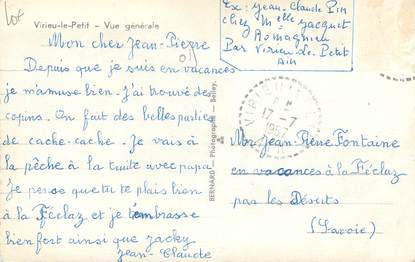 Virieu-le-Petit - Vue générale
Mon cher Jean-Pierre
Depuis que je suis en vacances
je m'amuse bien. J'ai trouvé des
copins. On fait des belles parties
de cache-cache. Je vais à
la pêche à la truite avec papa
Je pense que tu te plais bien
à la Féclaz et je t'embrasse
bien fort ainsi que Jacky
Jean-Claude
BERNARD - Photographe - Belley.
Ex: Jean-Claude Pin
chez Melle Jacquet
Romagnieu
Par Virieu-le-Petit
Ain
VIRIEU
17-7
1957
Mon Jean-René Fontaine
en vacances à la Féclaz
par les Déserts
(Savoie)